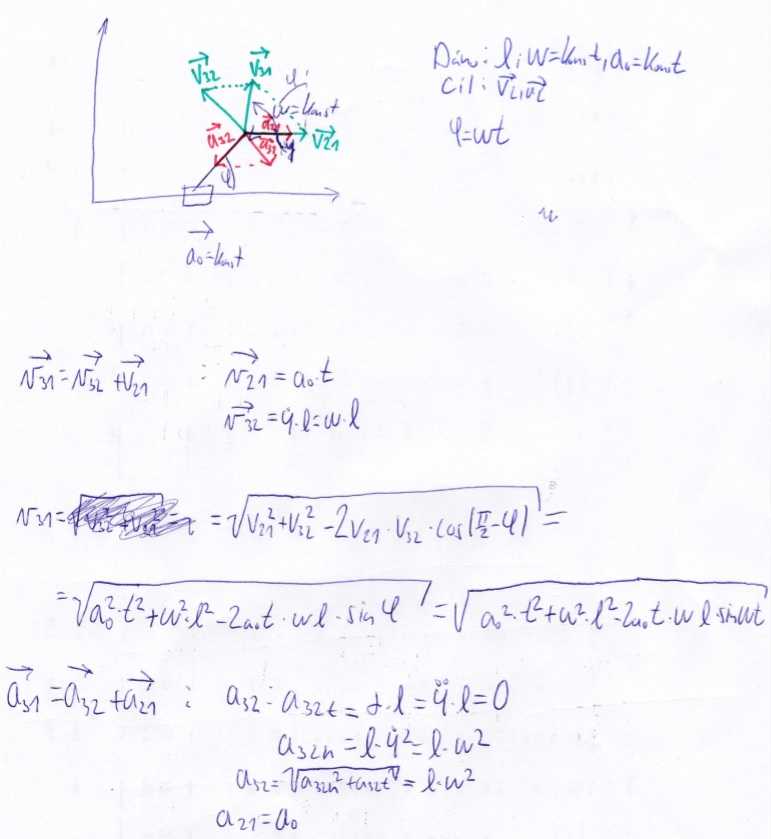 v₃₂ v₃₁
φ
ω=konst
a₂₁
a₃₂ a₃₁ φ v₂₁
φ
a₀=konst
Dáno: l, ω=konst, a₀=konst
Cíl:
φ=ωt
v₃₁=v₃₂+v₂₁ : v₂₁=a₀·t
v₃₂=φ̇·l=ω·l
v₃₁= =√(v₂₁²+v₃₂²-2v₂₁·v₃₂·cos(π/2-φ))=
=√(a₀²·t²+ω²·l²-2a₀t·ωl·sinφ)=√(a₀²·t²+ω²·l²-2a₀t·ωl·sinωt)
a₃₁=a₃₂+a₂₁ : a₃₂: a₃₂t=α·l=φ̈·l=0
a₃₂n=l·φ̇²=l·ω²
a₃₂=√(a₃₂n²+a₃₂t²)=l·ω²
a₂₁=a₀